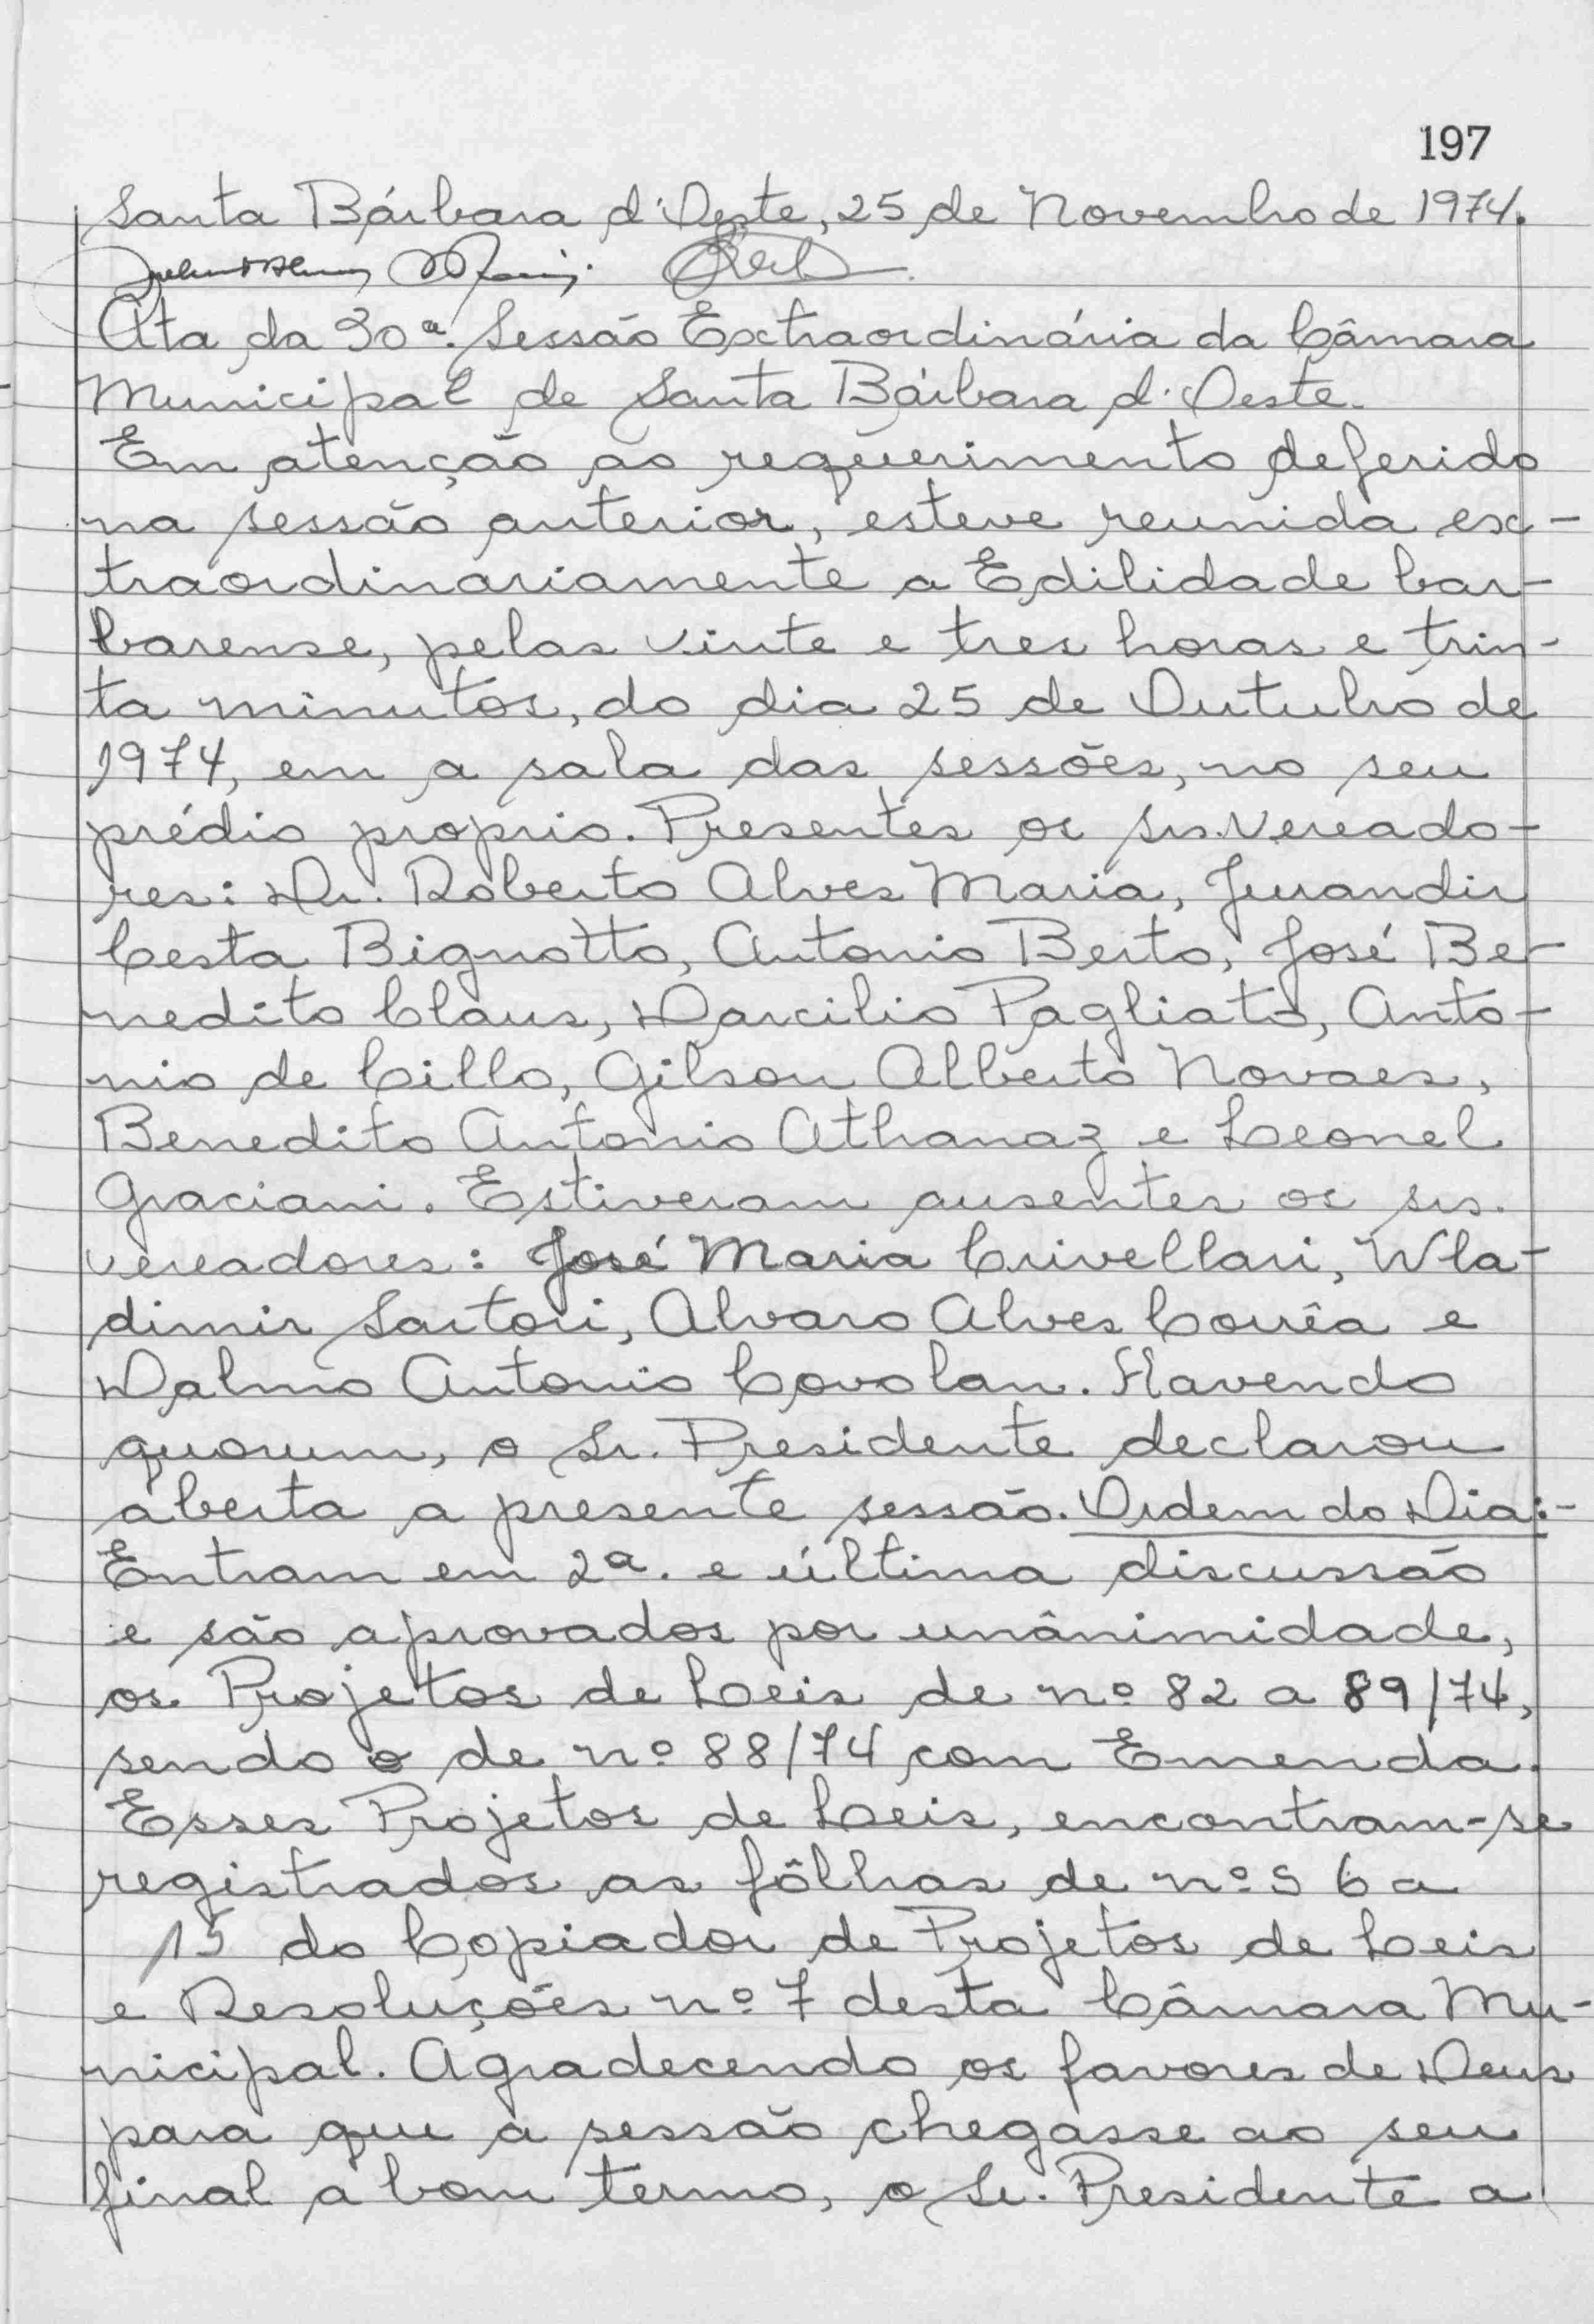 197
Santa Bárbara d'Oeste, 25 de Novembro de 1974.
Ata da 30a. Sessão Extraordinária da Câmara
Municipal de Santa Bárbara d'Oeste.
Em atenção ao requerimento deferido
na sessão anterior, esteve reunida ex-
traordinariamente a Edilidade bar-
barense, pelas vinte e tres horas e trin-
ta minutos, do dia 25 de Outubro de
1974, em a sala das sessões, no seu
prédio proprio. Presentes os srs. Vereado-
res: Dr. Roberto Alves Maria, Jurandir
Cesta Bignotto, Antonio Berto, José Be-
nedito Claus, Darcilio Pagliato, Anto-
nio de Cillo, Gilson Alberto Novaes,
Benedito Antonio Athanaz e Leonel
Graciani. Estiveram ausentes os srs.
vereadores: José Maria Crivellari, Wla-
dimir Sartori, Alvaro Alves Corrêa e
Dalmo Antonio Covolan. Havendo
quorum, o Sr. Presidente declarou
aberta a presente sessão. Ordem do Dia:-
Entram em 2a. e última discussão
e são aprovados por unânimidade,
os Projetos de Leis de nº 82 a 89/74,
sendo o de nº 88/74 com Emenda.
Esses Projetos de Leis, encontram-se
registrados as fôlhas de nºs 6 a
15 do Copiador de Projetos de Leis
e Resoluções nº 7 desta Câmara Mu-
nicipal. Agradecendo os favores de Deus
para que a sessão chegasse ao seu
final a bom termo, o Sr. Presidente a